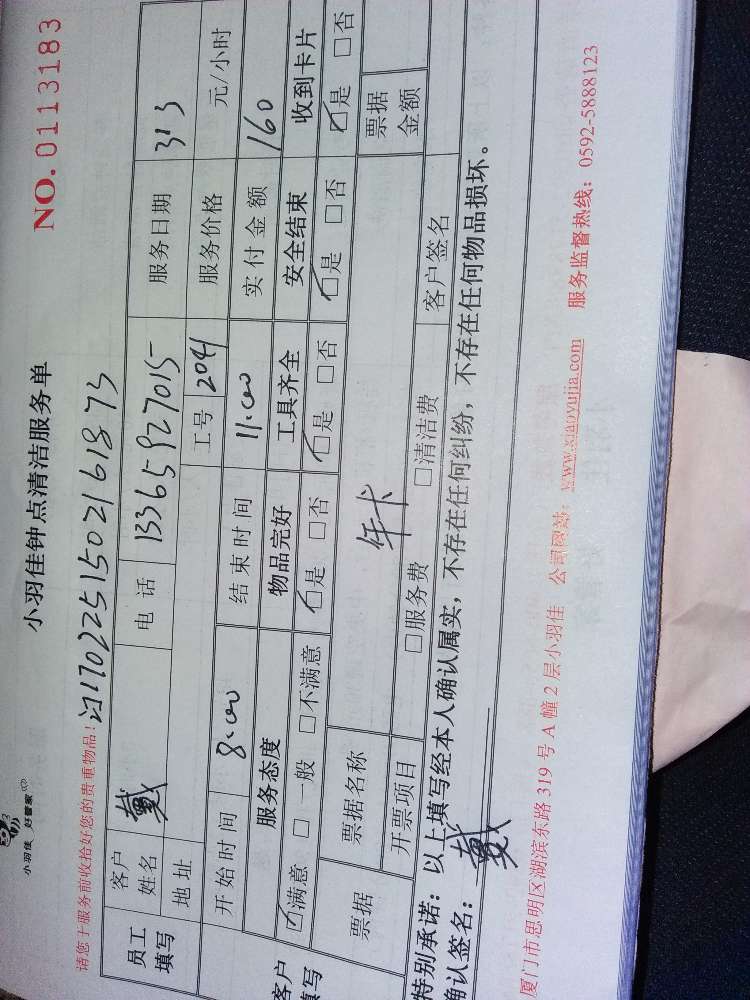 小羽佳 好管家
小羽佳钟点清洁服务单
NO. 0113183
请您于服务前收拾好您的贵重物品!
1702251502161873
员工填写 客户姓名 戴 电话 13365927015 服务日期 313
地址 工号 2041 服务价格 元/小时
开始时间 8:00 结束时间 11:00 实付金额 160
客户填写 服务态度 物品完好 工具齐全 安全结束 收到卡片
☑满意 □一般 □不满意 ☑是 □否 ☑是 □否 ☑是 □否 ☑是 □否
票据 票据名称 年卡 票据金额
开票项目 □服务费 □清洁费 客户签名
特别承诺:以上填写经本人确认属实,不存在任何纠纷,不存在任何物品损坏。
确认签名: 戴
厦门市思明区湖滨东路 319 号 A 幢 2 层小羽佳 公司网站:www.xiaoyujia.com 服务监督热线:0592-5888123